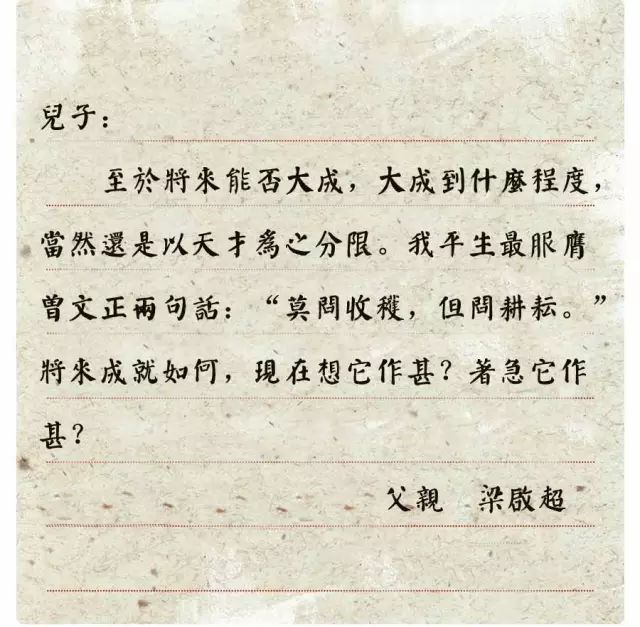 兒子：
至於將來能否大成，大成到什麼程度，
當然還是以天才為之分限。我平生最服膺
曾文正兩句話：“莫問收穫，但問耕耘。”
將來成就如何，現在想它作甚？著急它作
甚？
父親 梁啟超